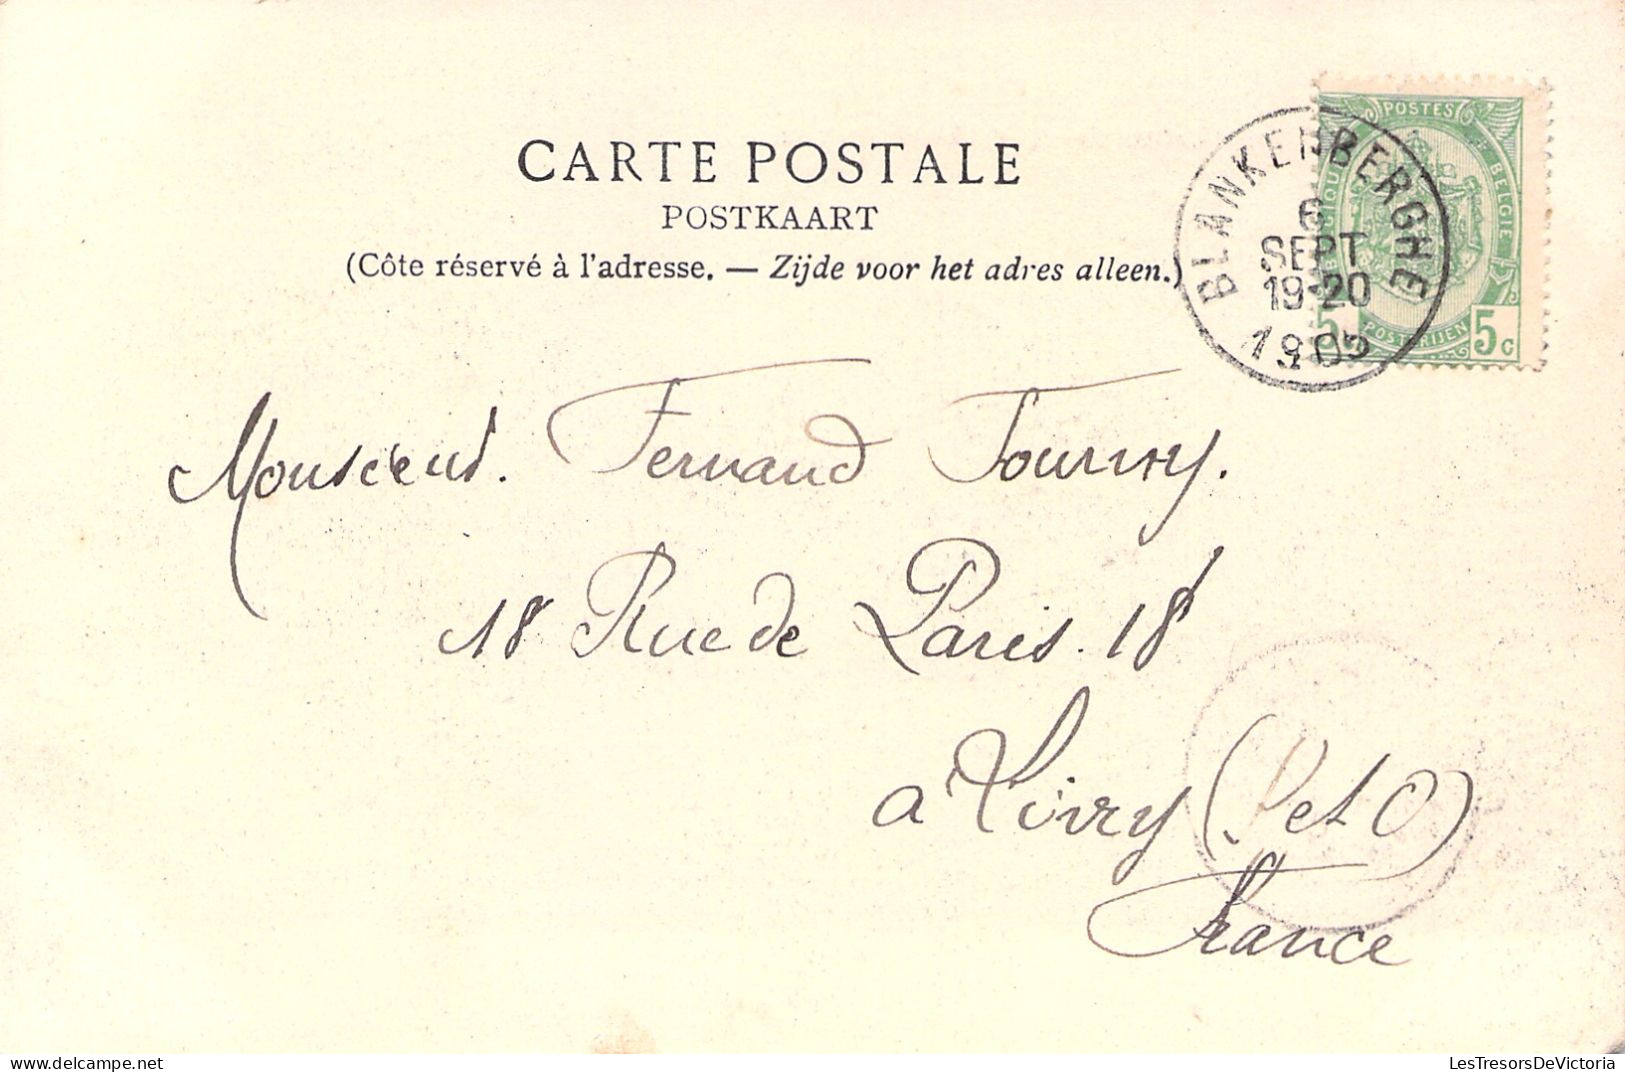 CARTE POSTALE
POSTKAART
(Côte réservé à l'adresse. — Zijde voor het adres alleen.)
POSTES
BELGIQUE BELGIE
POSTERIJEN
5 5c
BLANKENBERGHE
6
SEPT
19-20
1905
Monsieur. Fernand Tourny.
18 Rue de Paris. 18
a Livry (S et O)
France
LesTresorsDeVictoria